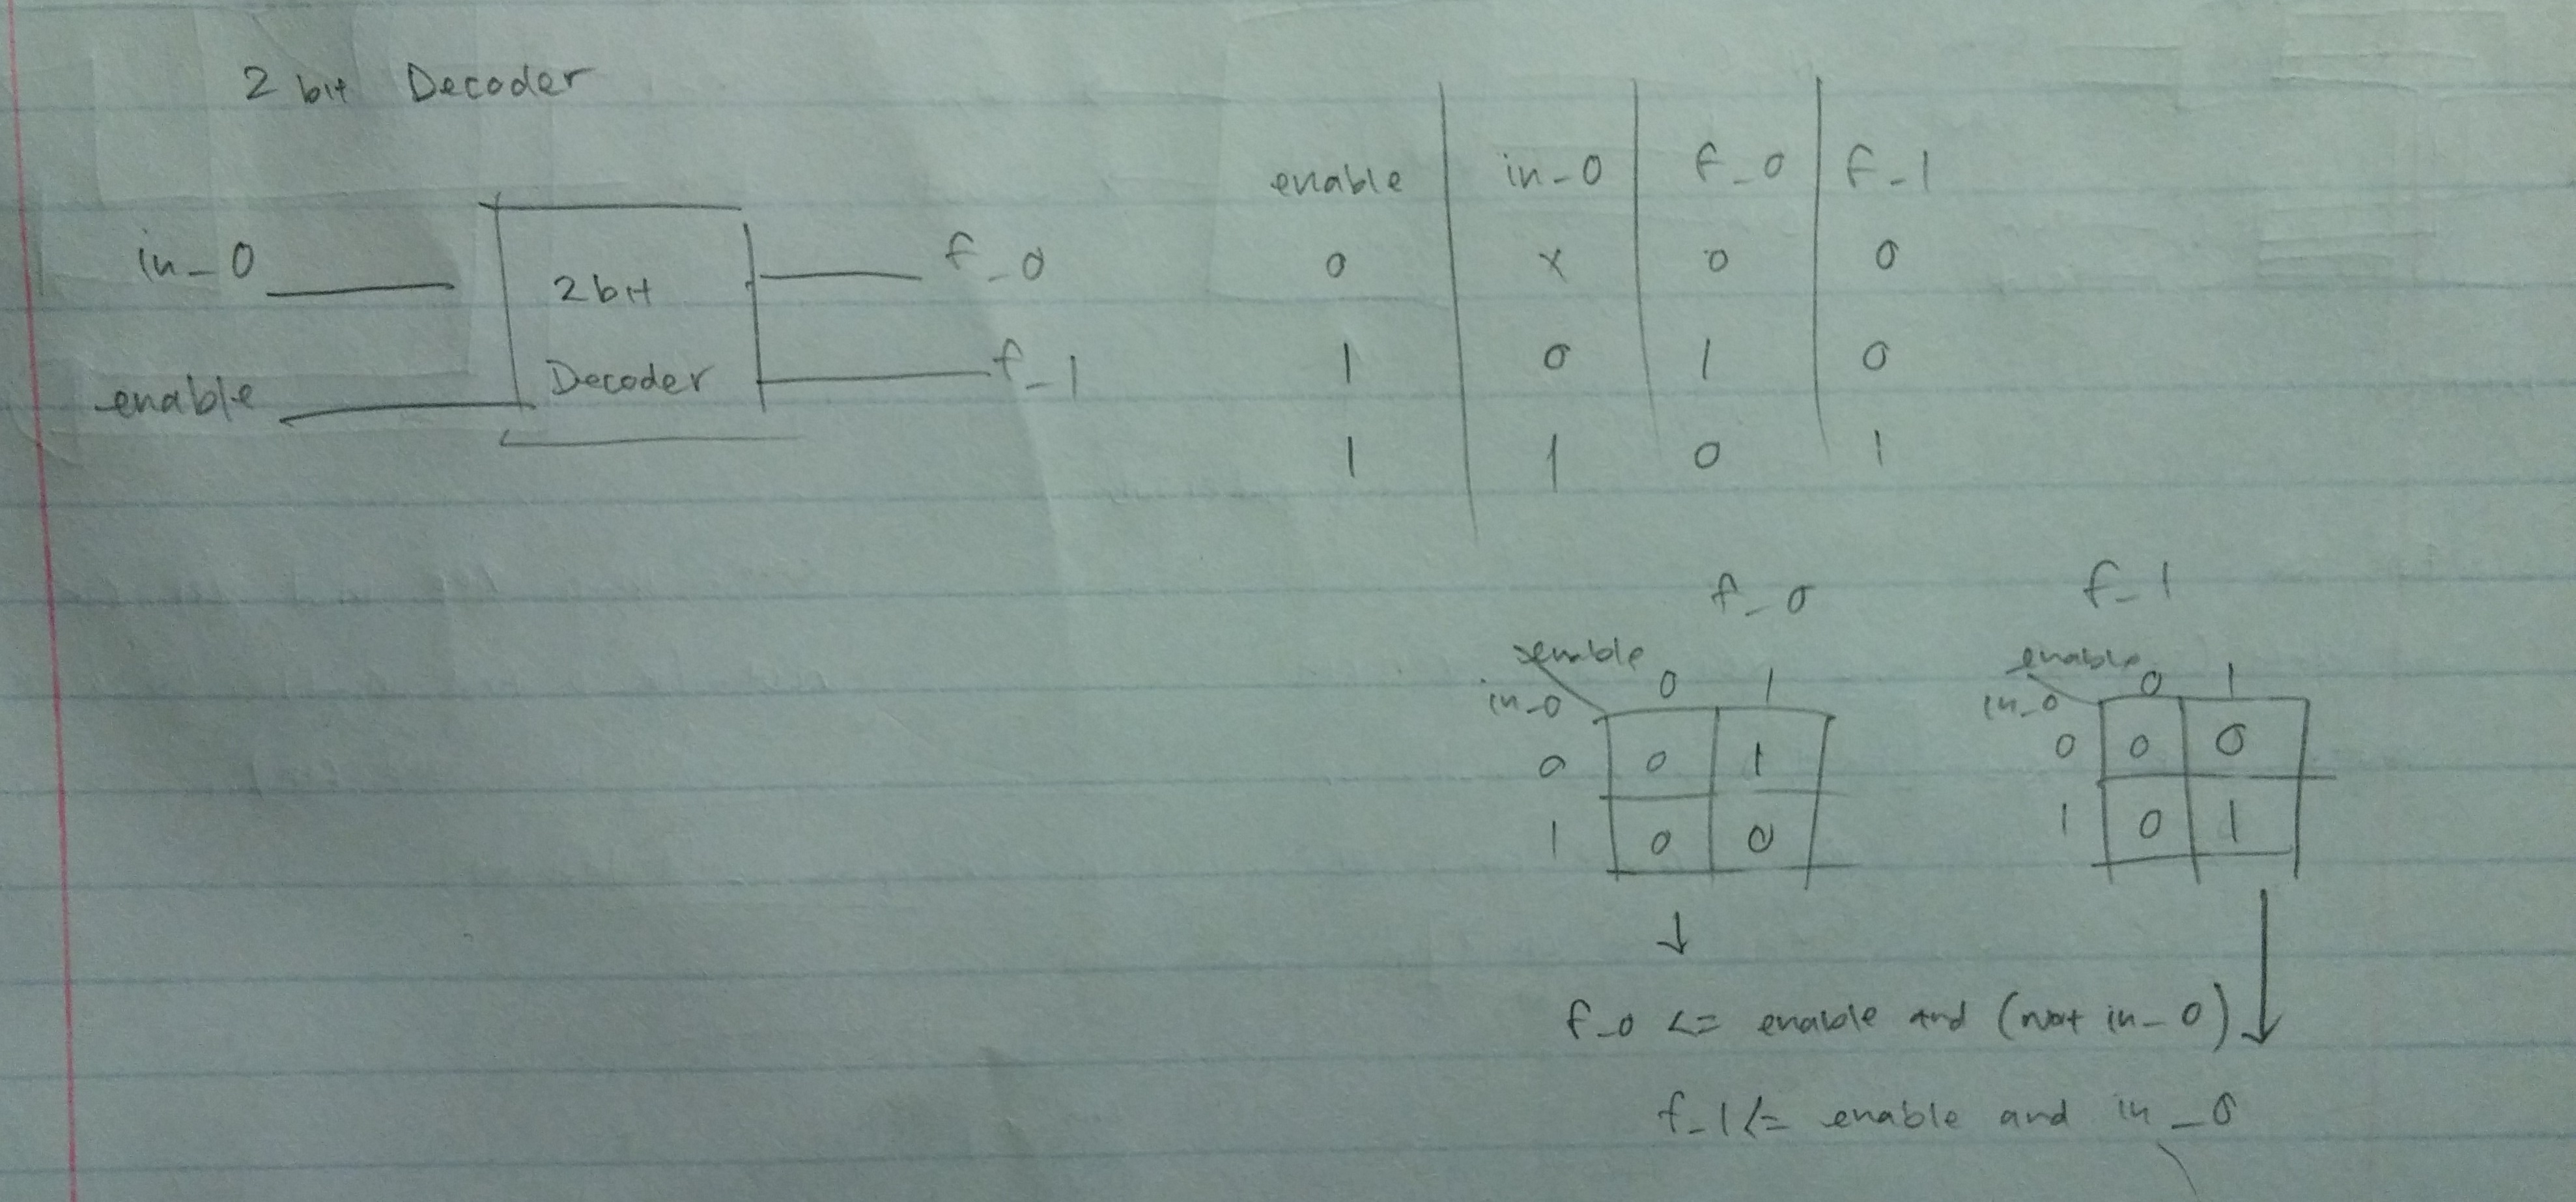 2 bit Decoder
in_0
enable
2 bit
Decoder
f_0
f_1
enable in_0 f_0 f_1
0 x 0 0
1 0 1 0
1 1 0 1
f_0
enable
in_0 0 1
0 0 1
1 0 0
f_1
enable
in_0 0 1
0 0 0
1 0 1
↓
f_0 <= enable and (not in_0)
↓
f_1 <= enable and in_0